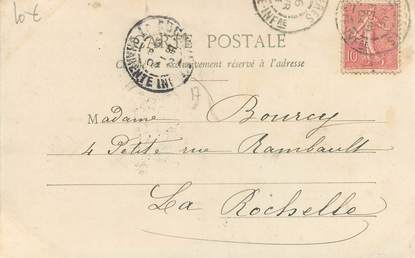 10 €
POSTALE
exclusivement réservé à l'adresse
CHARENTE INF
17
10
Madame Bourcy
4 Petite rue Rambault
La Rochelle